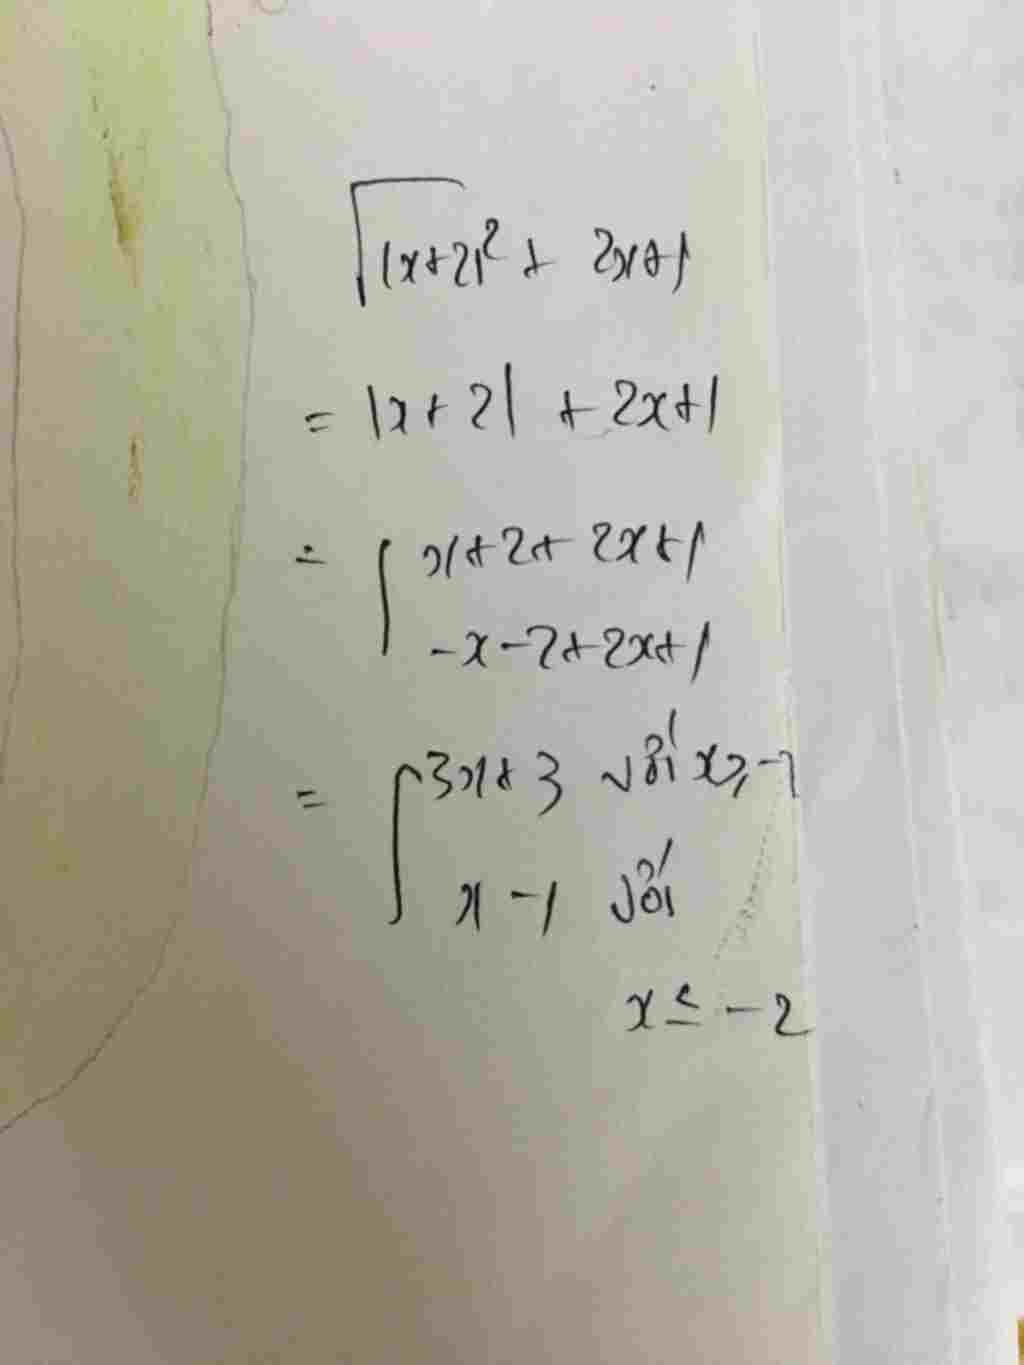 √(x+2)² + 2x+1
= |x+2| + 2x+1
= [ x+2+ 2x+1
-x-2+2x+1
= [ 3x+3 với x ≥ -2
x -1 với
x ≤ -2